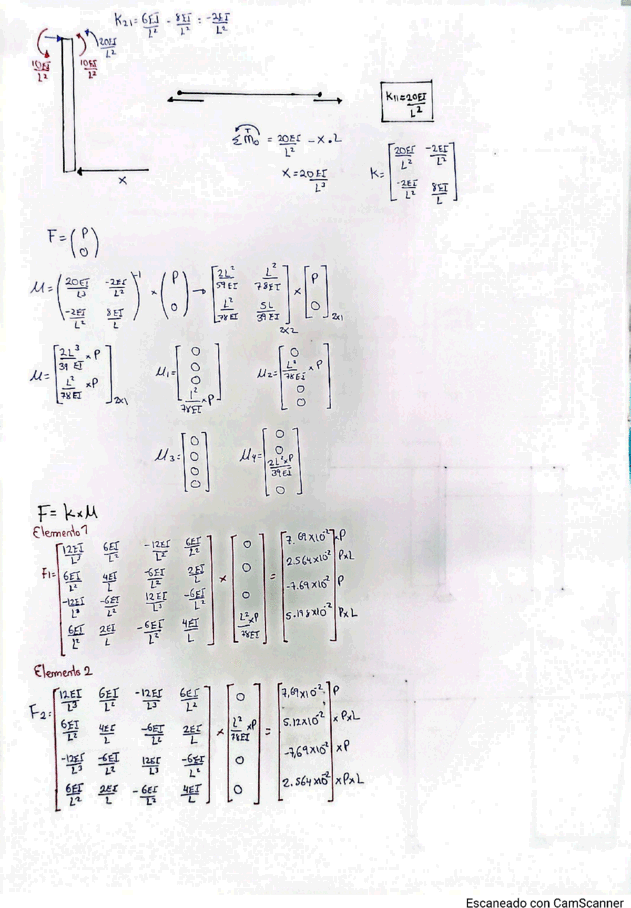 K21 = 6EI/L² - 8EI/L² = -2EI/L²
10EI/L²
10EI/L²
20EI/L²
x
K11 = 20EI/L²
ΣM₀ = 20EI/L² - x · L
x = 20EI/L³
K = [20EI/L² -2EI/L²
-2EI/L² 8EI/L]
F = (P
0)
μ = (20EI/L³ -2EI/L²
-2EI/L² 8EI/L)⁻¹ × (P
0) → [2L²/59EI L²/78EI
L²/78EI 5L/39EI]2x2 × [P
0]2x1
μ = [2L³/39EI × P
L²/78EI × P]2x1
μ1 = [0
0
0
L²/78EI × P]
μ2 = [0
L²/78EI × P
0
0]
μ3 = [0
0
0
0]
μ4 = [0
0
2L³×P/39EI
0]
F = K × μ
Elemento 1
F1 = [12EI/L³ 6EI/L² -12EI/L² 6EI/L²
6EI/L² 4EI/L -6EI/L² 2EI/L
-12EI/L³ -6EI/L² 12EI/L³ -6EI/L²
6EI/L² 2EI/L -6EI/L² 4EI/L] × [0
0
0
L²/78EI × P] = [7.69x10⁻² × P
2.564x10⁻² P×L
-7.69x10⁻² P
5.128x10⁻² P×L]
Elemento 2
F2 = [12EI/L³ 6EI/L² -12EI/L³ 6EI/L²
6EI/L² 4EI/L -6EI/L² 2EI/L
-12EI/L³ -6EI/L² 12EI/L³ -6EI/L²
6EI/L² 2EI/L -6EI/L² 4EI/L] × [0
L²/78EI × P
0
0] = [7,69x10⁻² P
5.12x10⁻² × P×L
-7,69x10⁻² × P
2.564x10⁻² × P×L]
Escaneado con CamScanner